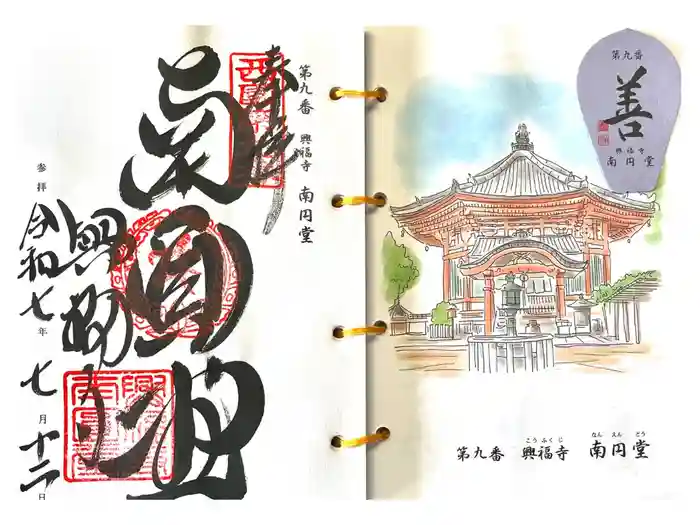 奉拝
第九番 興福寺 南円堂
南圓堂
興福寺
参拝 令和七年 七月十二日
第九番
善
興福寺
南円堂
こうふくじ なんえんどう
第九番 興福寺 南円堂